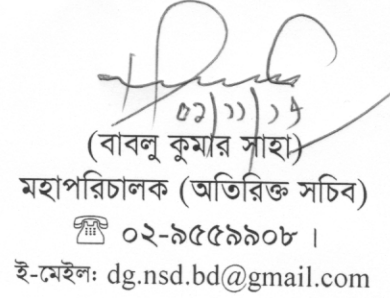 (বাবলু কুমার সাহা)
মহাপরিচালক (অতিরিক্ত সচিব)
☎ ০২-৯৫৫৯৯০৮ ।
ই-মেইলঃ dg.nsd.bd@gmail.com